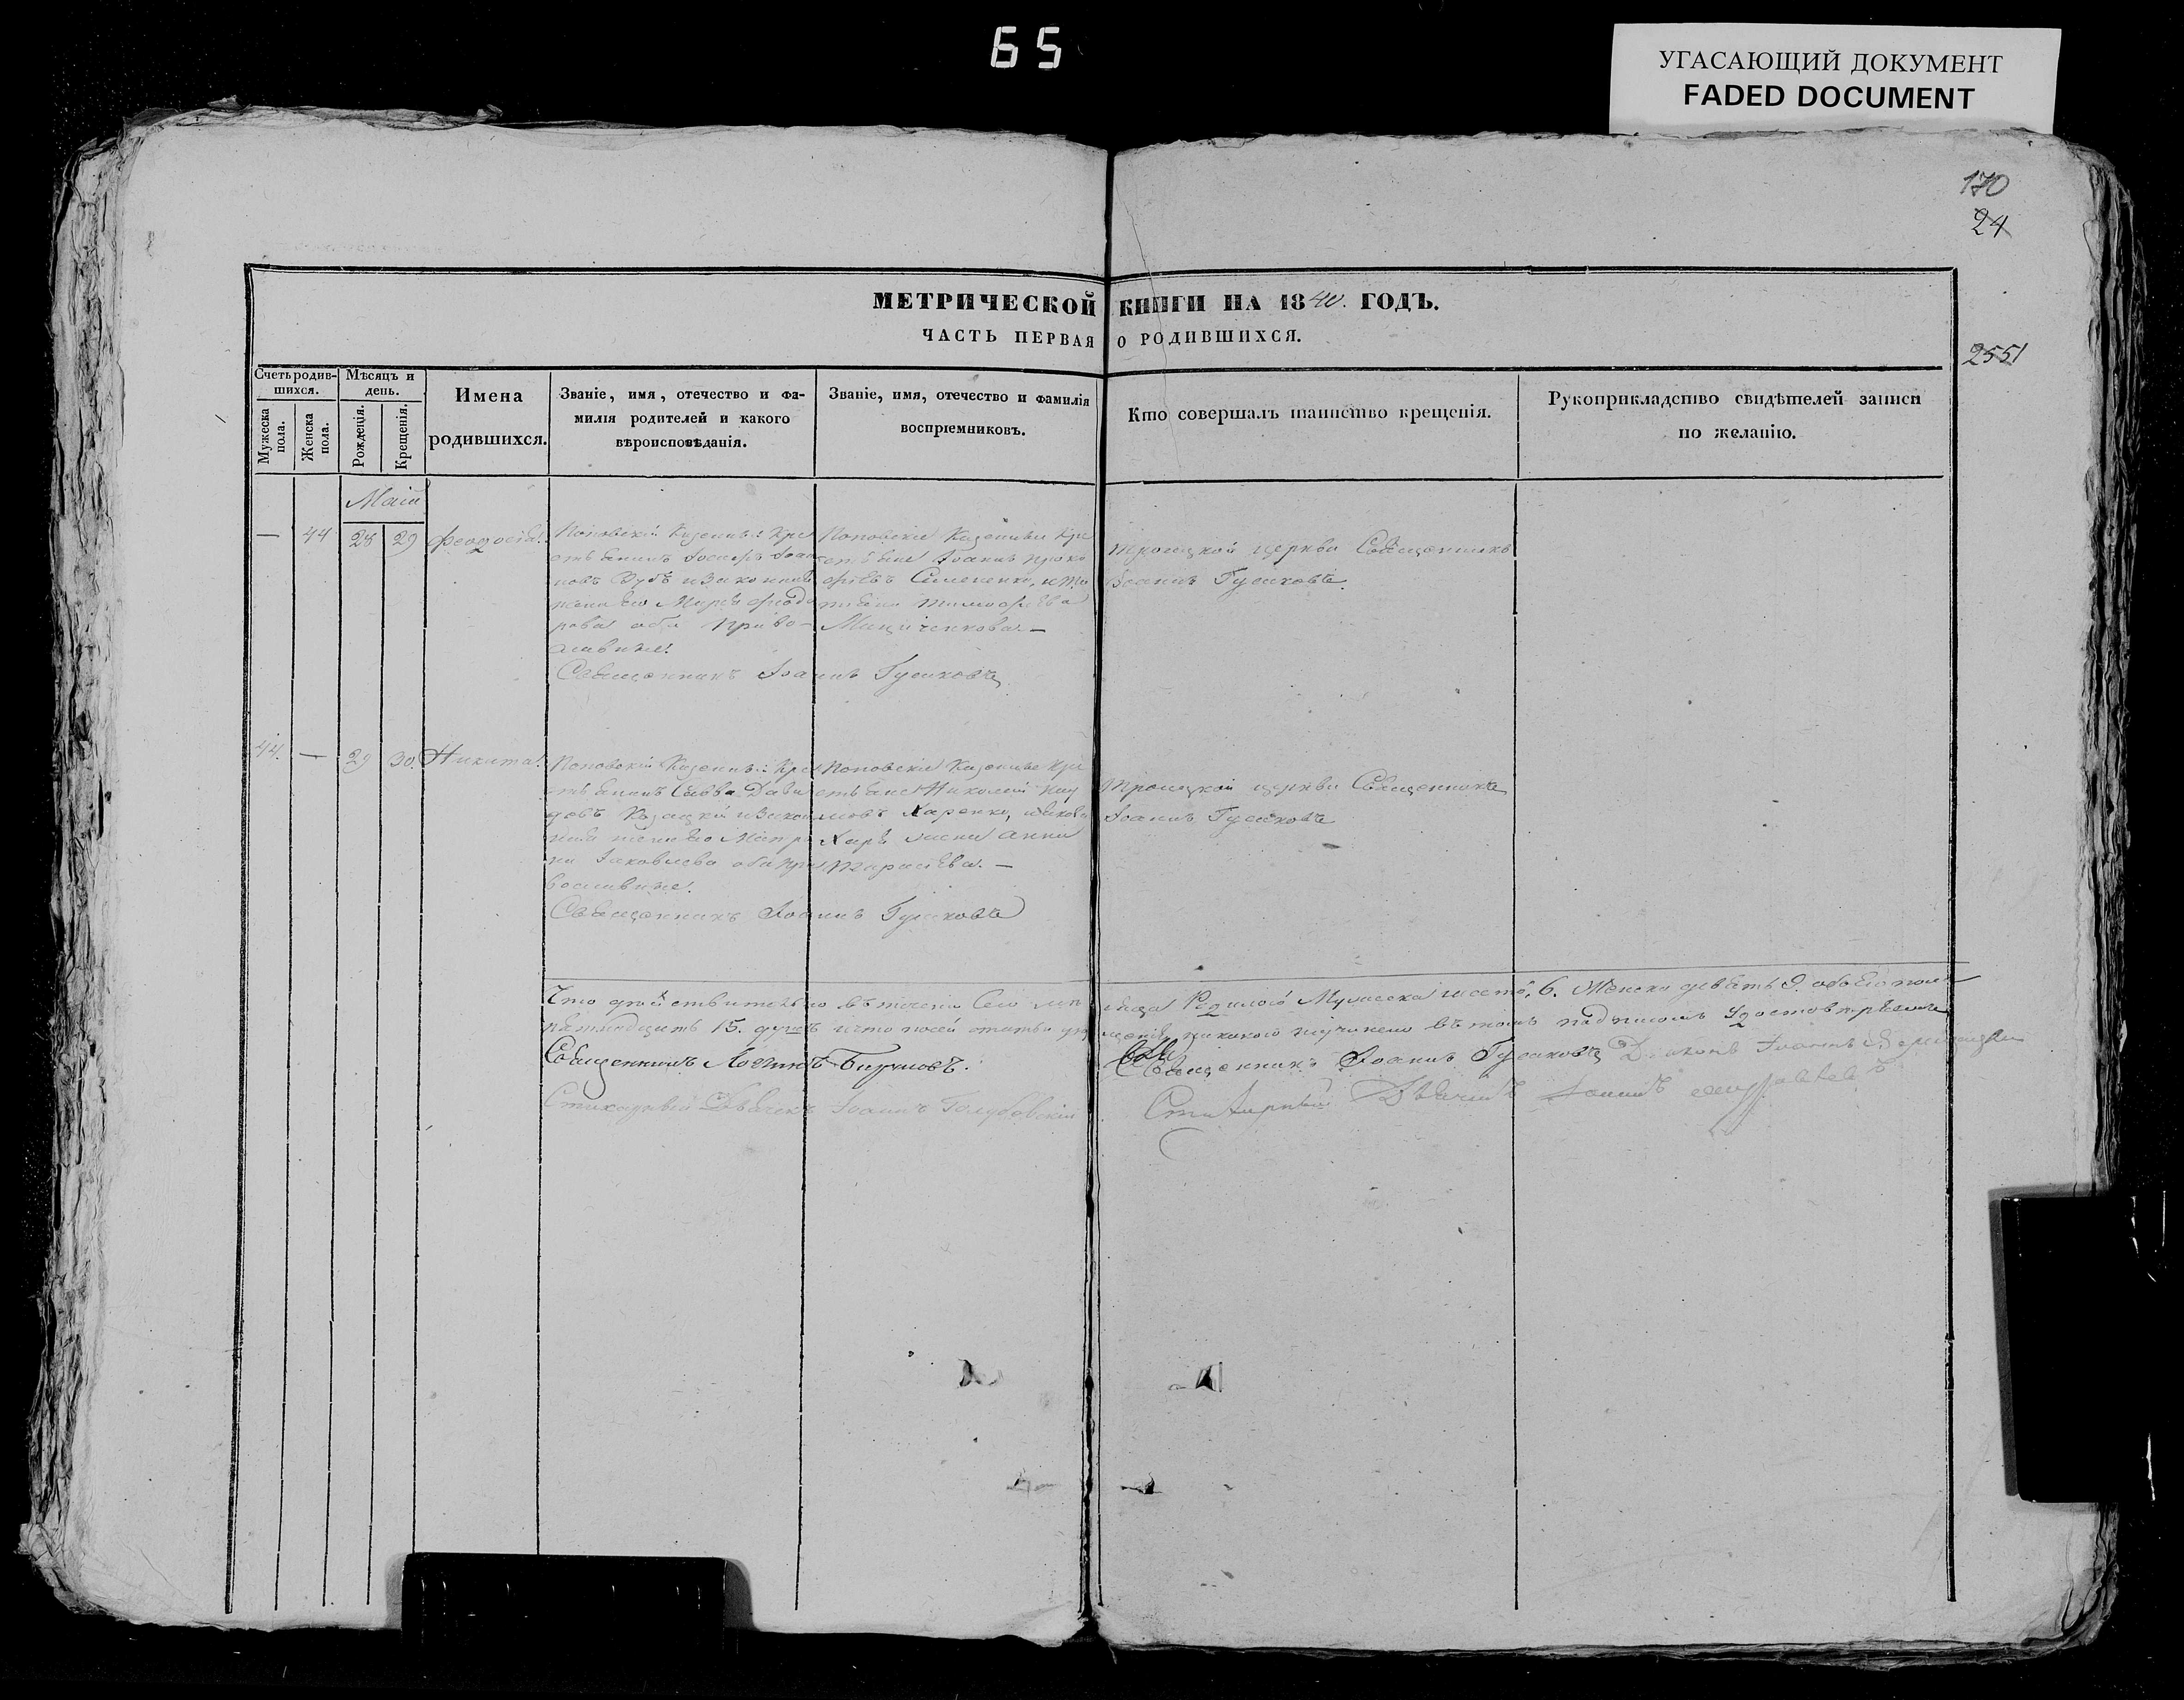 65
УГАСАЮЩИЙ ДОКУМЕНТ
FADED DOCUMENT
170
24
МЕТРИЧЕСКОЙ КНИГИ НА 1840. ГОДЪ.
ЧАСТЬ ПЕРВАЯ О РОДИВШИХСЯ.
2551
Счетъ родив-
шихся.
Мужеска пола.
Женска пола.
Мѣсяцъ и
день.
Рожденія.
Крещенія.
Имена
родившихся.
Званіе, имя, отечество и фа-
милія родителей и какого
вѣроисповѣданія.
Званіе, имя, отечество и фамилія
воспріемниковъ.
Кто совершалъ таинство крещенія.
Рукоприкладство свидѣтелей записи
по желанію.
Маій
— 44 28 29 Феодосія.
Поповскій Казенный Кре
стьянинъ Іосифъ Іоан
новъ Дубъ и законная
жена его Марѳа Феодо
рова оба право-
славные.
Поповскіе Казенные Кре
стьяне Іоаннъ Проко
фіевъ Симененко, и
Тимофѣева
Священникъ Іоаннъ Гусаковъ
Троицкой церкви Священникъ
Іоаннъ Гусаковъ
44. — 29 30. Никита.
Поповскій Казенный Кре
стьянинъ Савва Дави
довъ Козацкій и закон
ная жена его Матро
на Іаковлева оба пра
вославные.
Поповскіе Казенные Кре
стьяне Николай Нау
мовъ Харенко, и
Анна
Тарасіева. —
Священникъ Іоаннъ Гусаковъ
Троицкой церкви Священникъ
Іоаннъ Гусаковъ
Что дѣйствительно въ теченіи сего мѣсяца Родилось Мужеска шесть, 6. Женска девять 9. обоего пола
пятнадцать 15. душъ и что по сей статьѣ никакого въ томъ подписомъ Удостовѣряемъ
Священникъ Логгинъ Бируковъ.
Священникъ Іоаннъ Гусаковъ Діаконъ Іоаннъ
Стихарный Дьячекъ Іоаннъ Голубовскій
Стихарный Дьячекъ Іоаннъ